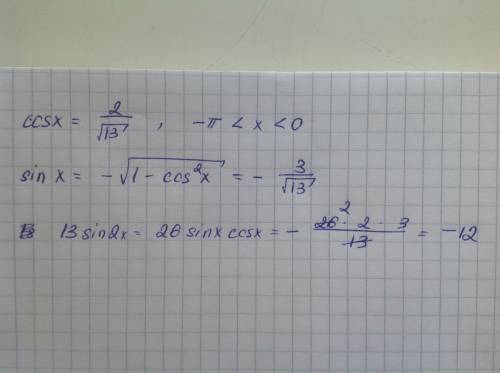 cosx = 2/√13 , -π < x < 0
sin x = -√(1 - cos²x) = - 3/√13
13 sin2x = 26 sinx cosx = - (26 2 · 2 · 3)/13 = -12